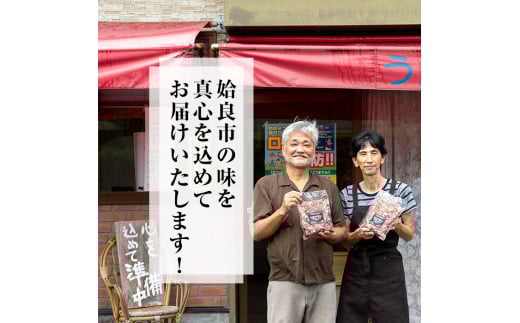 姶良市の味を
真心を込めて
お届けいたします!
う
心を
込めて
準備中
防!!